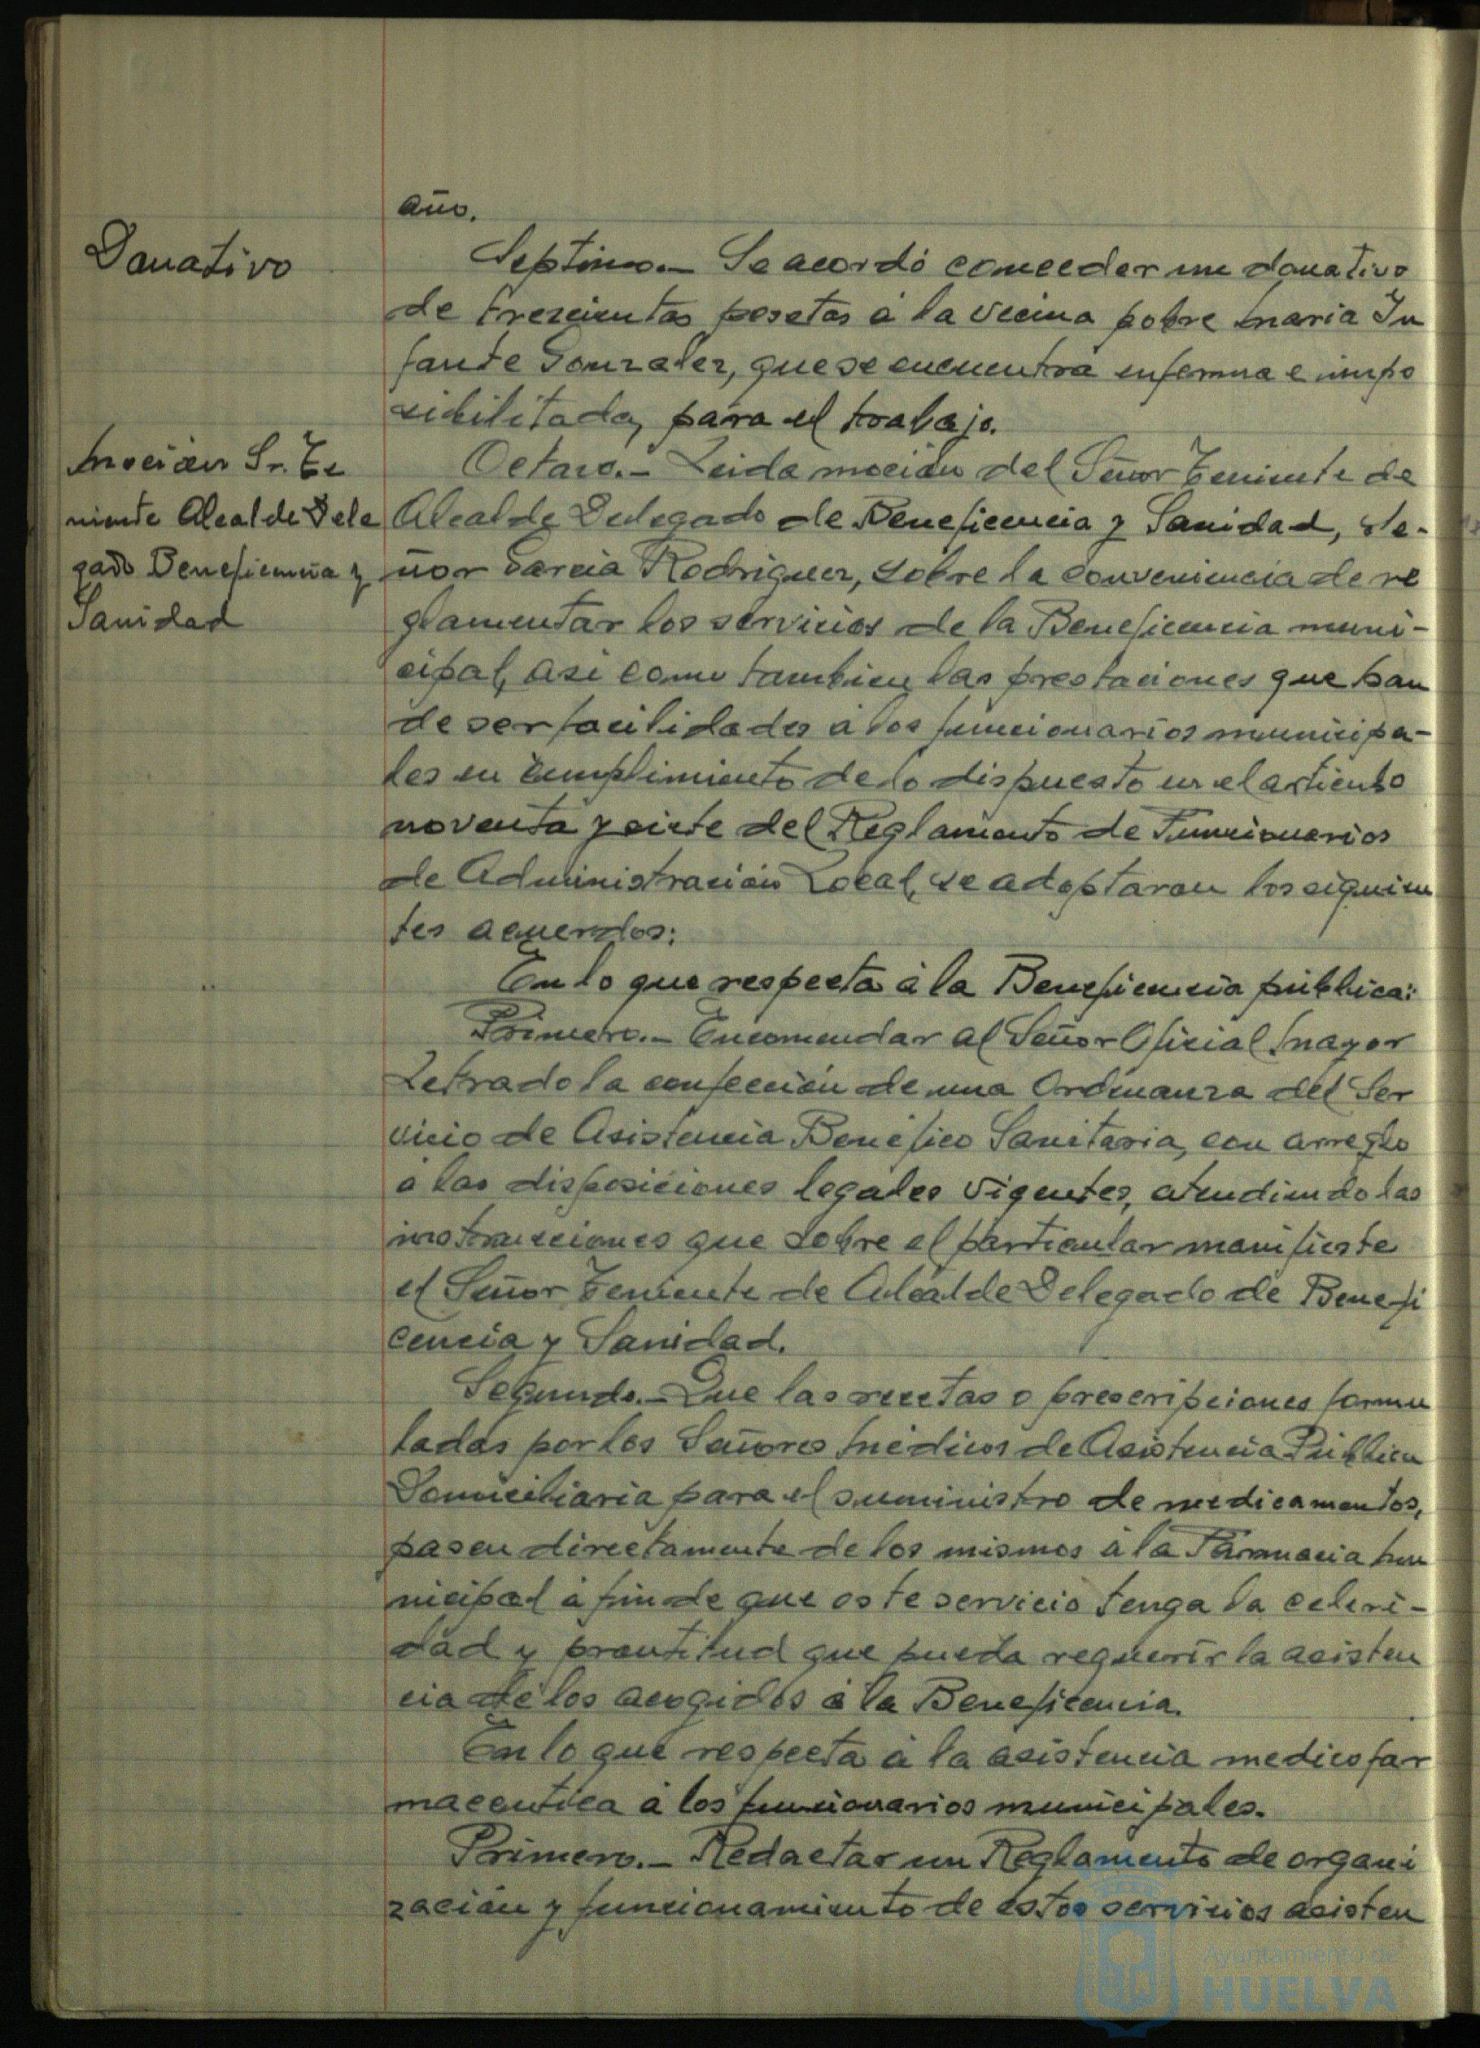 año.
Donativo
Septimo.- Se acordó conceder un donativo
de trescientas pesetas á la vecina pobre Maria In
fante Gonzalez, que se encuentra enferma e impo
sibilitada, para el trabajo.
Moción Sr. Te
niente Alcalde Dele
gado Beneficencia y
Sanidad
Octavo.- Leida moción del Señor Teniente de
Alcalde Delegado de Beneficencia y Sanidad, Se-
ñor Garcia Rodriguez, sobre la conveniencia de re
glamentar los servicios de la Beneficencia muni-
cipal, asi como tambien las prestaciones que han
de ser facilidades á los funcionarios municipa-
les en cumplimiento de lo dispuesto en el articulo
noventa y siete del Reglamento de Funcionarios
de Administración Local, se adoptaron los siguien
tes acuerdos:
En lo que respecta á la Beneficencia pública:
Primero.- Encomendar al Señor Oficial Mayor
Letrado la confección de una Ordenanza del Ser
vicio de Asistencia Benéfico Sanitaria, con arreglo
á las disposiciones legales vigentes, atendiendo las
instrucciones que sobre el particular manifieste
el Señor Teniente de Alcalde Delegado de Benefi
cencia y Sanidad.
Segundo.- Que las recetas o prescripciones formu
ladas por los Señores Médicos de Asistencia Pública
Domiciliaria para el suministro de medicamentos,
pasen directamente de los mismos á la Farmacia Mu
nicipal á fin de que este servicio tenga la celeri-
dad y prontitud que pueda requerir la asisten
cia de los acogidos á la Beneficencia.
En lo que respecta á la asistencia medico far
maceutica á los funcionarios municipales.
Primero.- Redactar un Reglamento de organi
zación y funcionamiento de estos servicios asisten
Ayuntamiento de
HUELVA